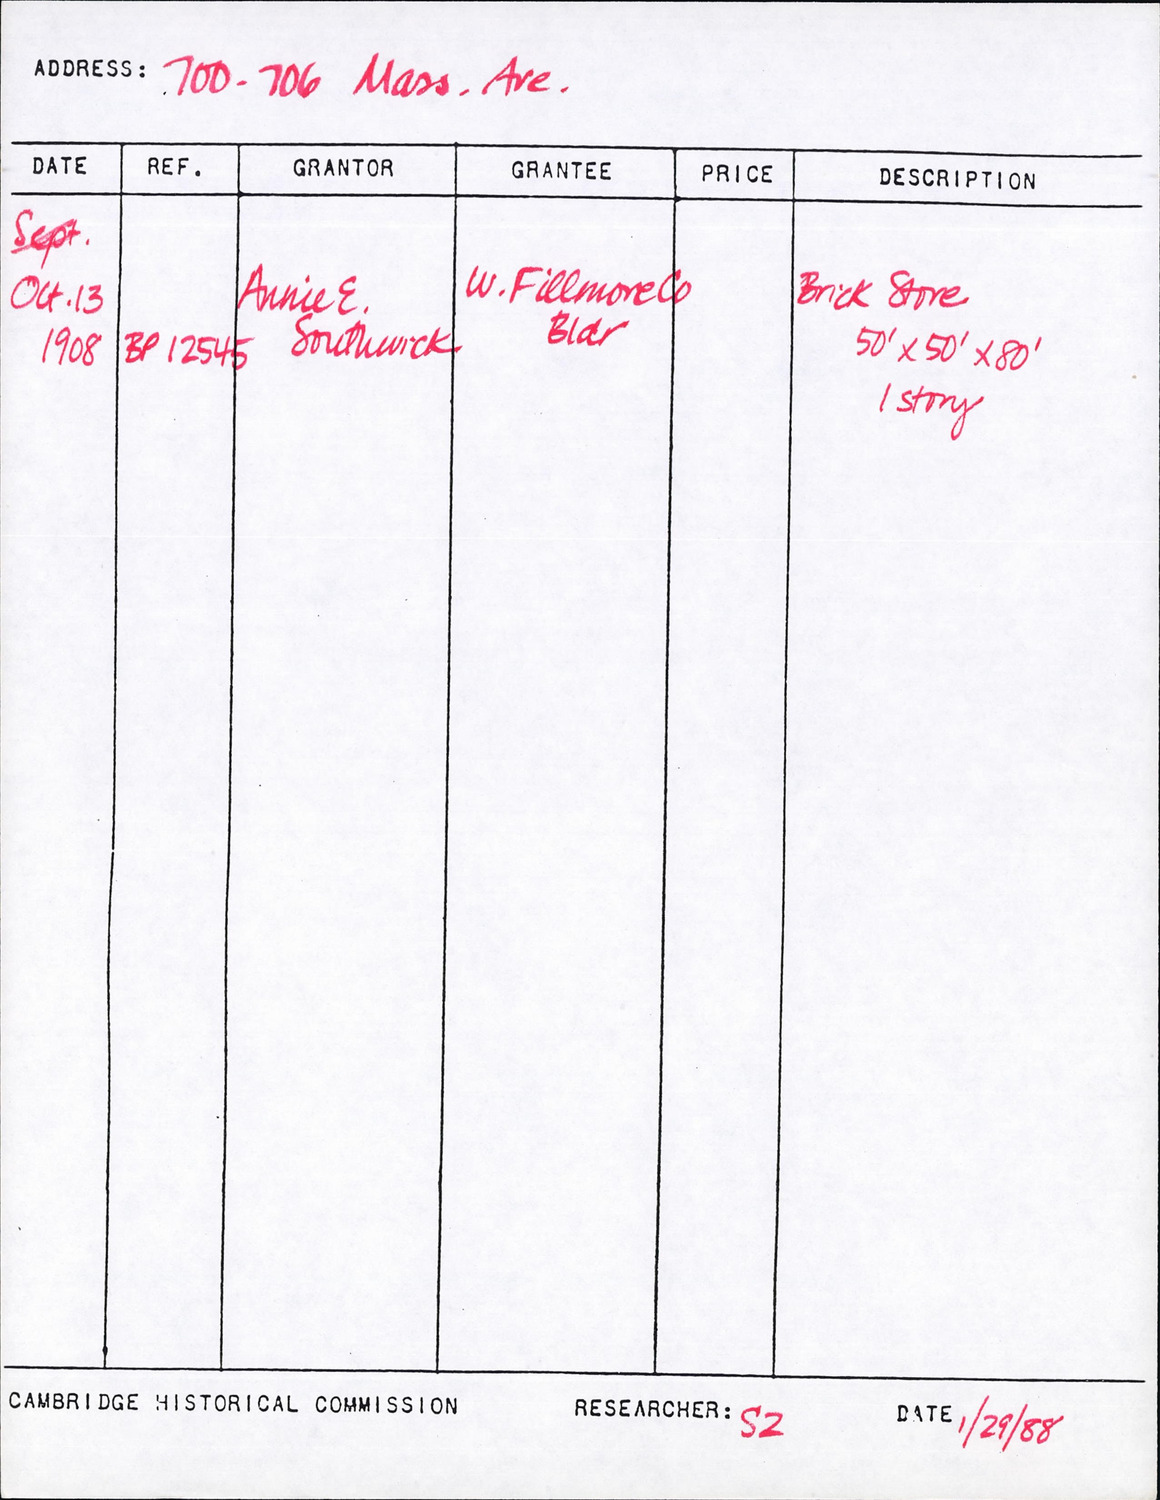 ADDRESS: 700-706 Mass. Ave.
DATE REF. GRANTOR GRANTEE PRICE DESCRIPTION
Sept.
Oct. 13 Annie E. W. Fillmore Co Brick Store
1908 BP 12545 Southwick Bldr 50' x 50' x 80'
1 story
CAMBRIDGE HISTORICAL COMMISSION RESEARCHER: SZ DATE 1/29/88